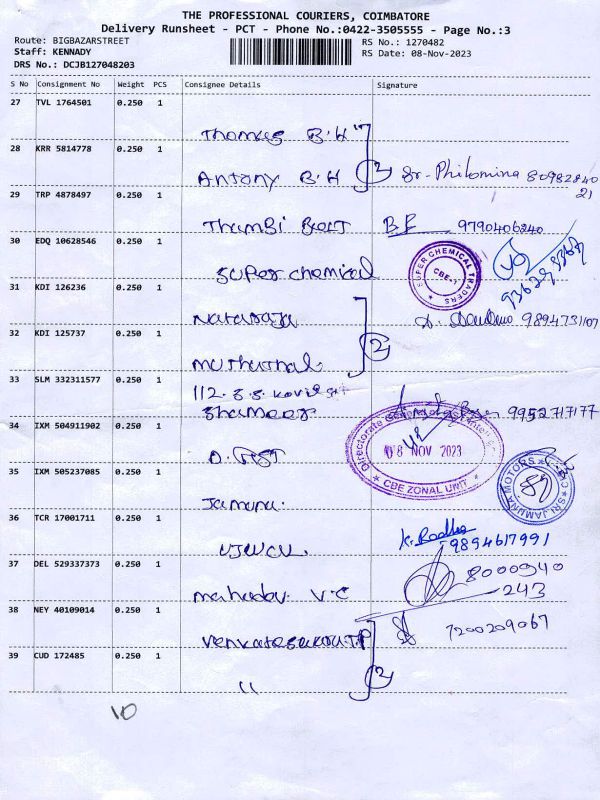 THE PROFESSIONAL COURIERS, COIMBATORE
Delivery Runsheet - PCT - Phone No.:0422-3505555 - Page No.:3
Route: BIGBAZARSTREET
RS No.: 1270482
Staff: KENNADY
RS Date: 08-Nov-2023
DRS No.: DCJB127048203
S No Consignment No Weight PCS Consignee Details Signature
27 TVL 1764501 0.250 1
Thomas B.H
28 KRR 5814778 0.250 1
Antony B.H 2 Sr. Philomina 80982840
21
29 TRP 4878497 0.250 1
Thambi BELT BE 9790406240
30 EDQ 10628546 0.250 1
Super chemical
SUPER CHEMICAL TRADERS
CBE-1
31 KDI 126236 0.250 1
Nataraja 9894731107
32 KDI 125737 0.250 1
Muthuthal 2
33 SLM 332311577 0.250 1
112. S.S. Kovil St
Shameer 9952717177
34 IXM 504911902 0.250 1
08 NOV 2023
CBE ZONAL UNIT
D. GST
35 IXM 505237085 0.250 1
SRI JAMUNA MOTORS
Jamuna.
36 TCR 17001711 0.250 1
K. Radha
9894617991
37 DEL 529337373 0.250 1
8000940
243
Mahadev. V.C
38 NEY 40109014 0.250 1
Venkatesakou T.P 7200209067
39 CUD 172485 0.250 1
" 2
10